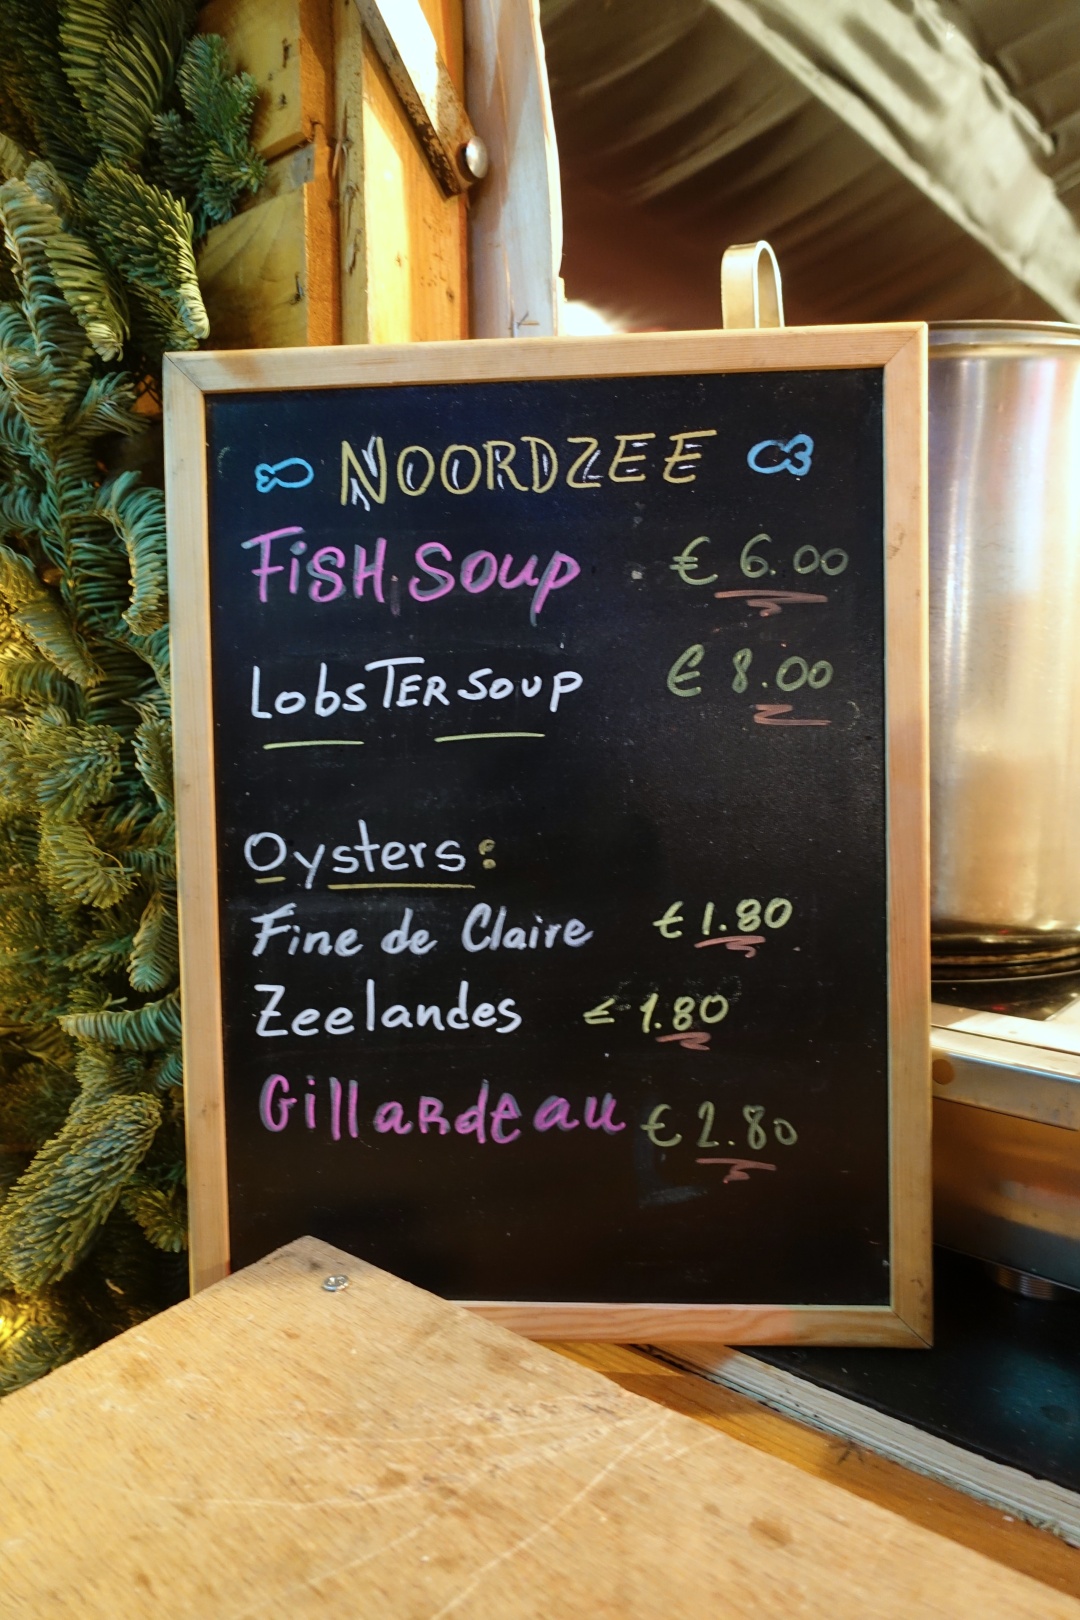 NOORDZEE
FiSH SOUP € 6.00
LobsTER SOUP € 8.00
Oysters:
Fine de Claire € 1.80
Zeelandes € 1.80
Gillardeau € 2.80